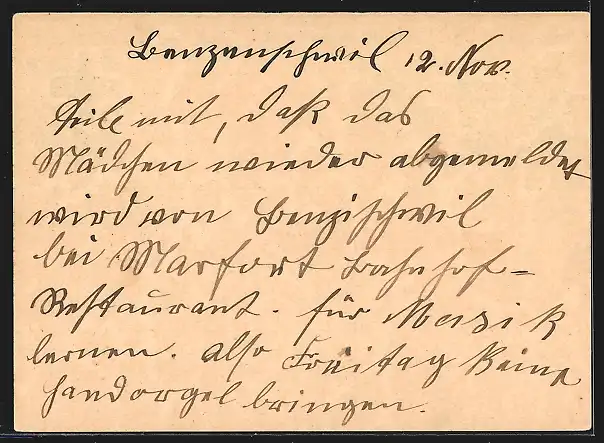 Benzenschwil 12. Nov.
Teile mit, daß das
Mädchen wieder abgemeldet
wird von Benzischwil
bei Marfort Bahnhof=
Restaurant. für Musik
lernen. also Freitag keine
Handorgel bringen.